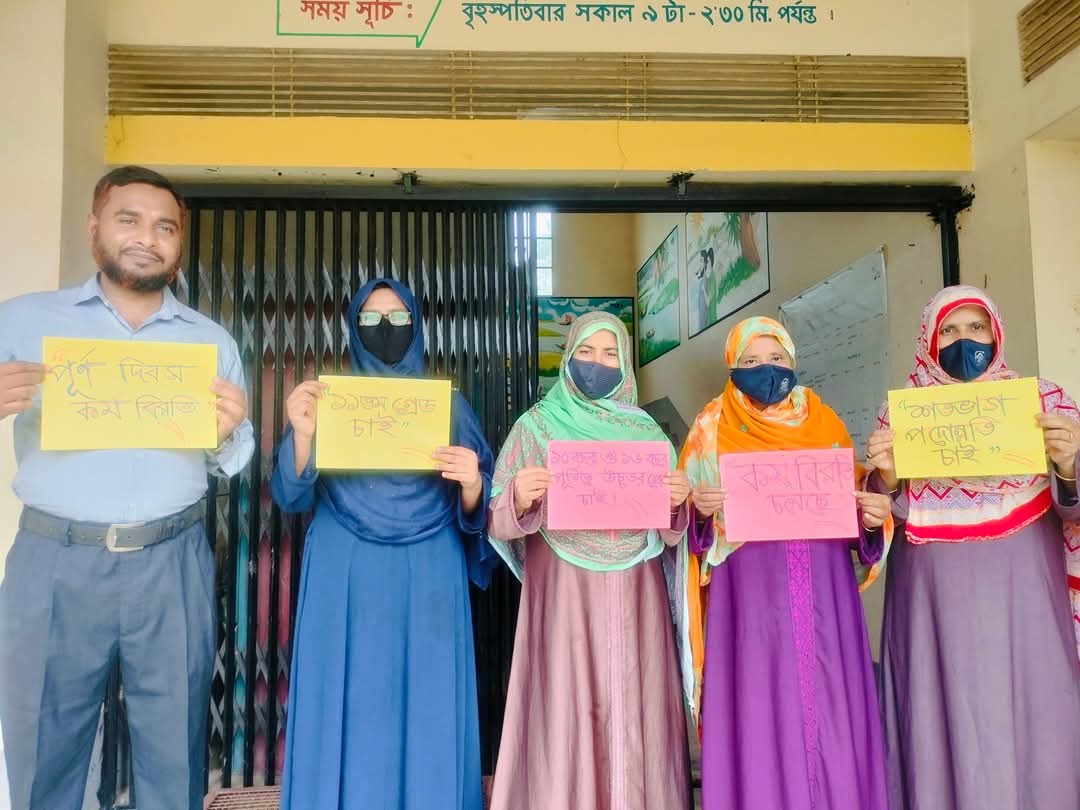 সময় সূচি :
বৃহস্পতিবার সকাল ৯ টা - ২'৩০ মি. পর্যন্ত ।
"পূর্ণ দিবস
কর্ম বিরতি"
"১১তম গ্রেড
চাই"
১০ বছর ও ১৬ বছর
পূর্তিতে উচ্চতর গ্রেড
চাই।
কর্ম বিরতি
চলছে
"শতভাগ
পদোন্নতি
চাই"